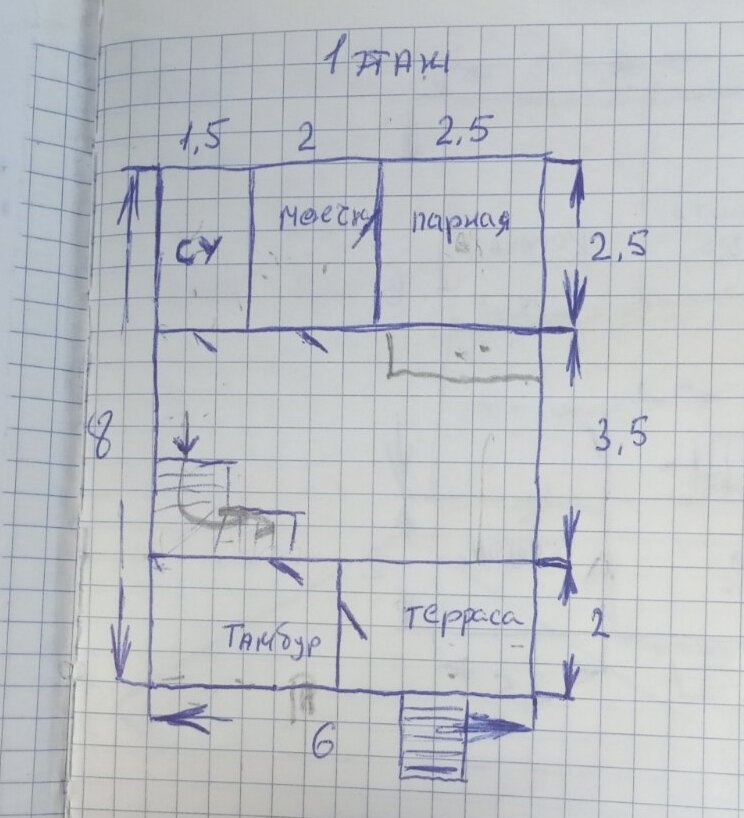 1 этаж
1,5 2 2,5
СУ моечн парная
2,5
8
3,5
Тамбур терраса
2
6